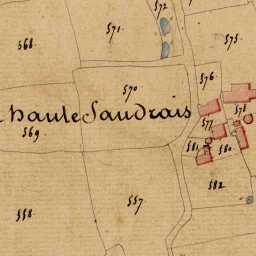 572
571
568
575
576
570
haute Saudrais
578
577
569
581
580
582
557
558